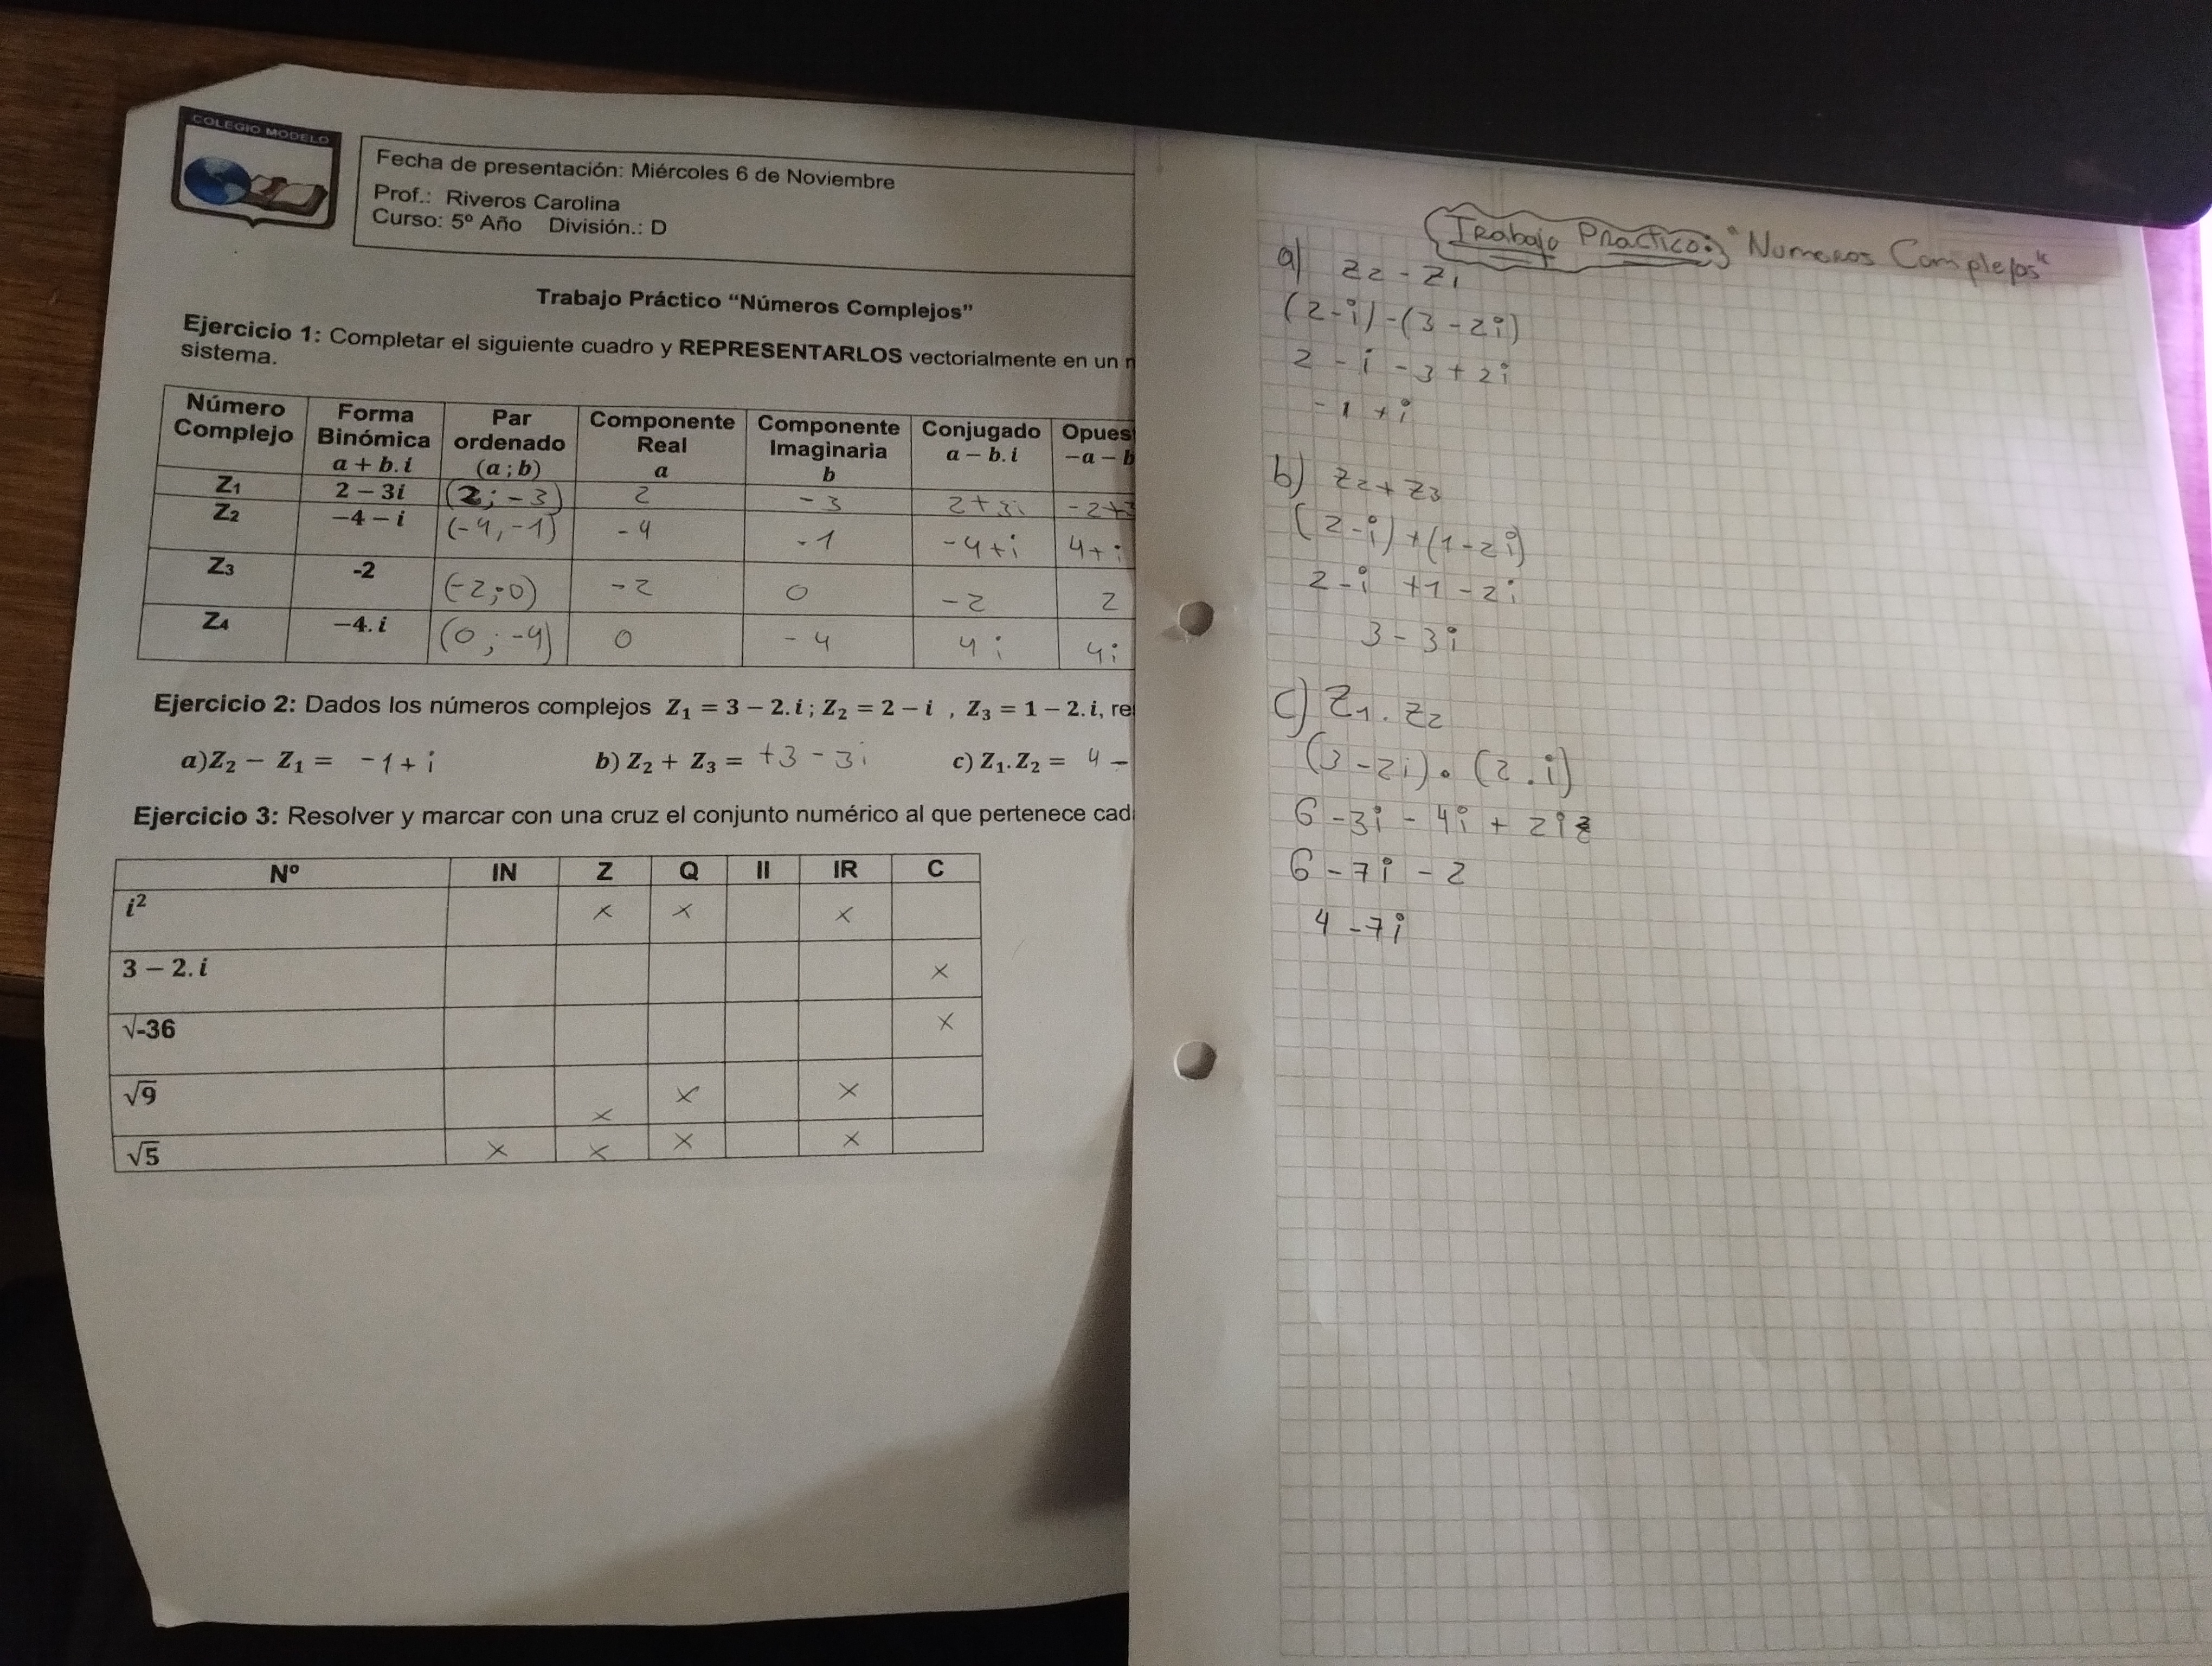 COLEGIO MODELO
Fecha de presentación: Miércoles 6 de Noviembre
Prof.: Riveros Carolina
Curso: 5º Año División.: D
Trabajo Práctico “Números Complejos”
Ejercicio 1: Completar el siguiente cuadro y REPRESENTARLOS vectorialmente en un
sistema.
Número Complejo | Forma Binómica a + b.i | Par ordenado (a ; b) | Componente Real a | Componente Imaginaria b | Conjugado a − b.i | Opues −a − b
Z1 2 − 3i (2; -3) 2 -3 2+3i -2+3
Z2 −4 − i (-4,-1) -4 -1 -4+i 4+i
Z3 -2 (-2;0) -2 0 -2 2
Z4 −4.i (0 ; -4) 0 -4 4i 4i
Ejercicio 2: Dados los números complejos Z1 = 3 − 2.i ; Z2 = 2 − i , Z3 = 1 − 2.i, re
a)Z2 − Z1 = -1+i b) Z2 + Z3 = +3 - 3i c) Z1.Z2 = 4 -
Ejercicio 3: Resolver y marcar con una cruz el conjunto numérico al que pertenece cad
Nº IN Z Q II IR C
i² x x x
3 − 2.i x
√-36 x
√9 x x x
√5 x x x x
Trabajo Practico: "Numeros Complejos"
a) Z2 - Z1
(2-i)-(3-2i)
2 - i - 3 + 2i
-1 + i
b) Z2 + Z3
(2-i)+(1-2i)
2-i +1 -2i
3 - 3i
c) Z1 . Z2
(3-2i) . (2 . i)
6 - 3i - 4i + 2i2
6 - 7i - 2
4 - 7i